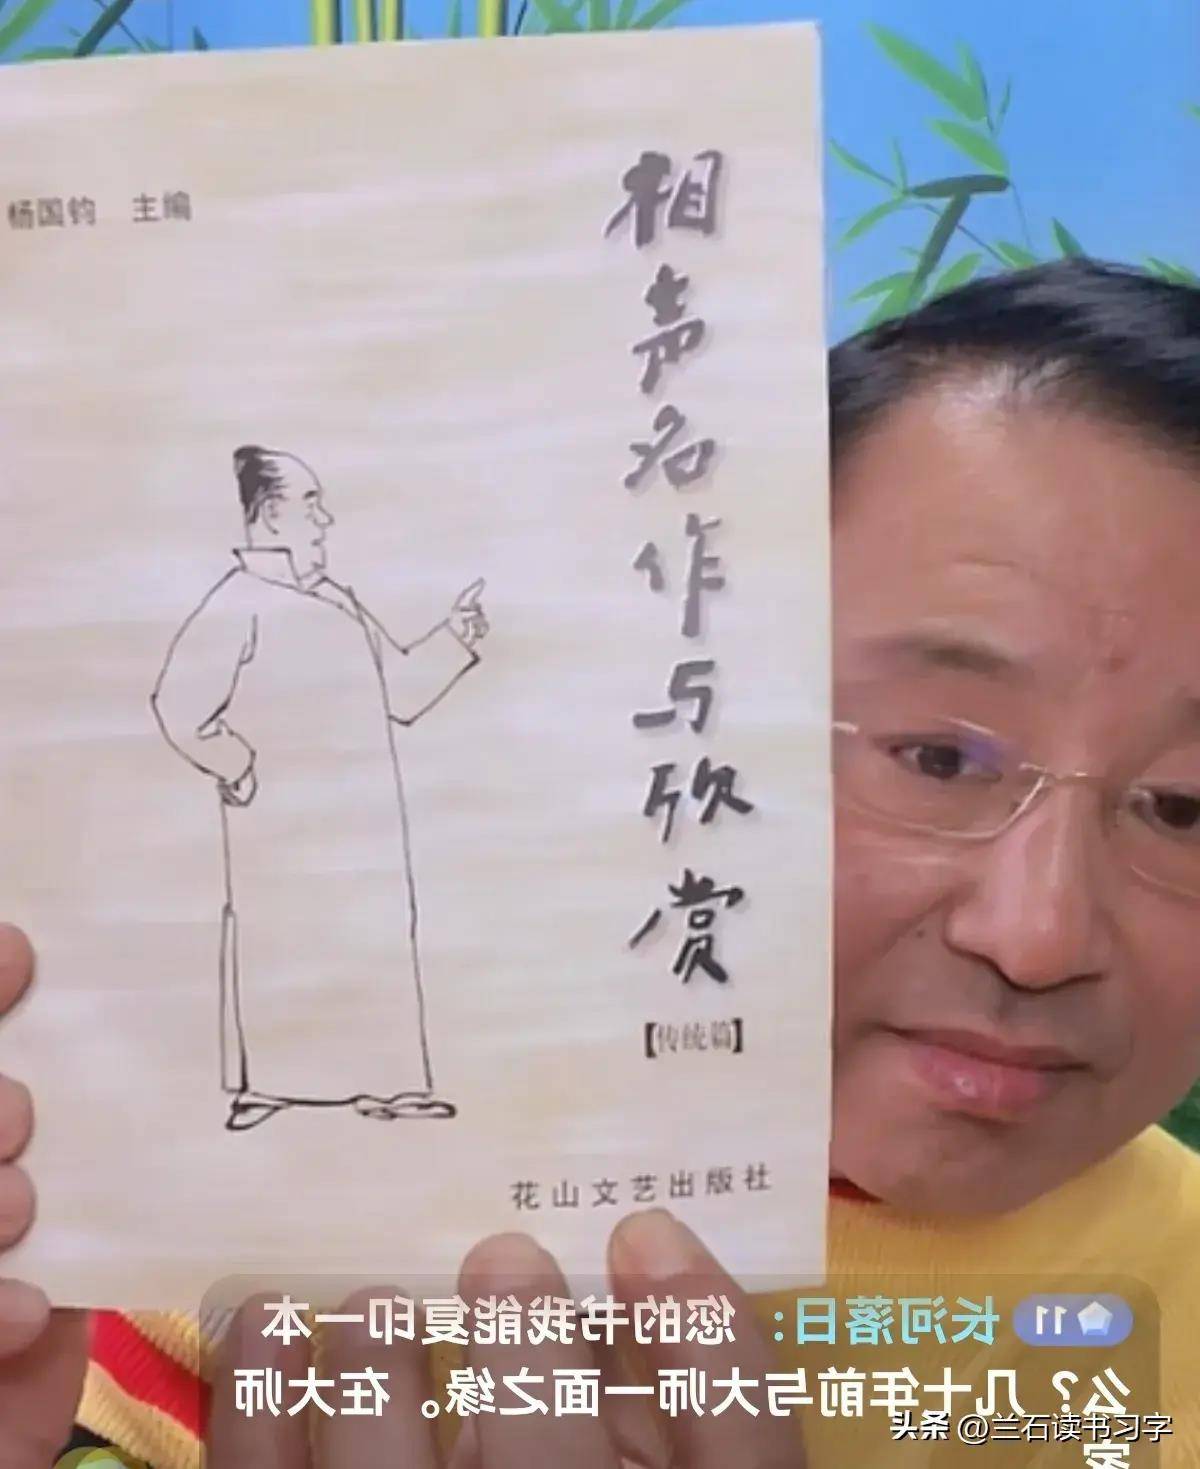 杨国钧 主编
相声名作与欣赏
【传统篇】
花山文艺出版社
11 长河落日：您的书我能复印一本
么？几十年前与大师一面之缘。在大师
家
头条 @兰石读书习字